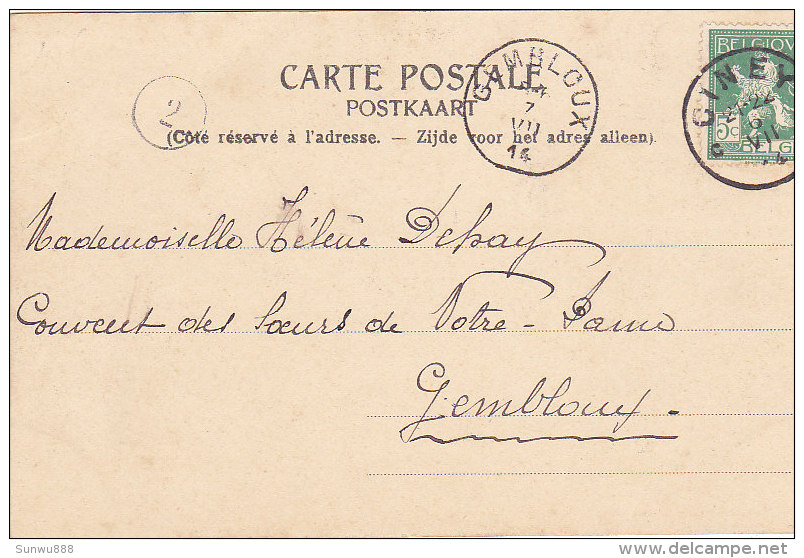 BELGIQUE
CINEY
21-22
6
VII
14
5c
BELG
GEMBLOUX
7
VII
14
CARTE POSTALE
POSTKAART
2
(Côté réservé à l'adresse. — Zijde voor het adres alleen).
Mademoiselle Hélène Dehay
Couvent des Sœurs de Notre-Dame
Gembloux.
Sunwu888
delcampe.net